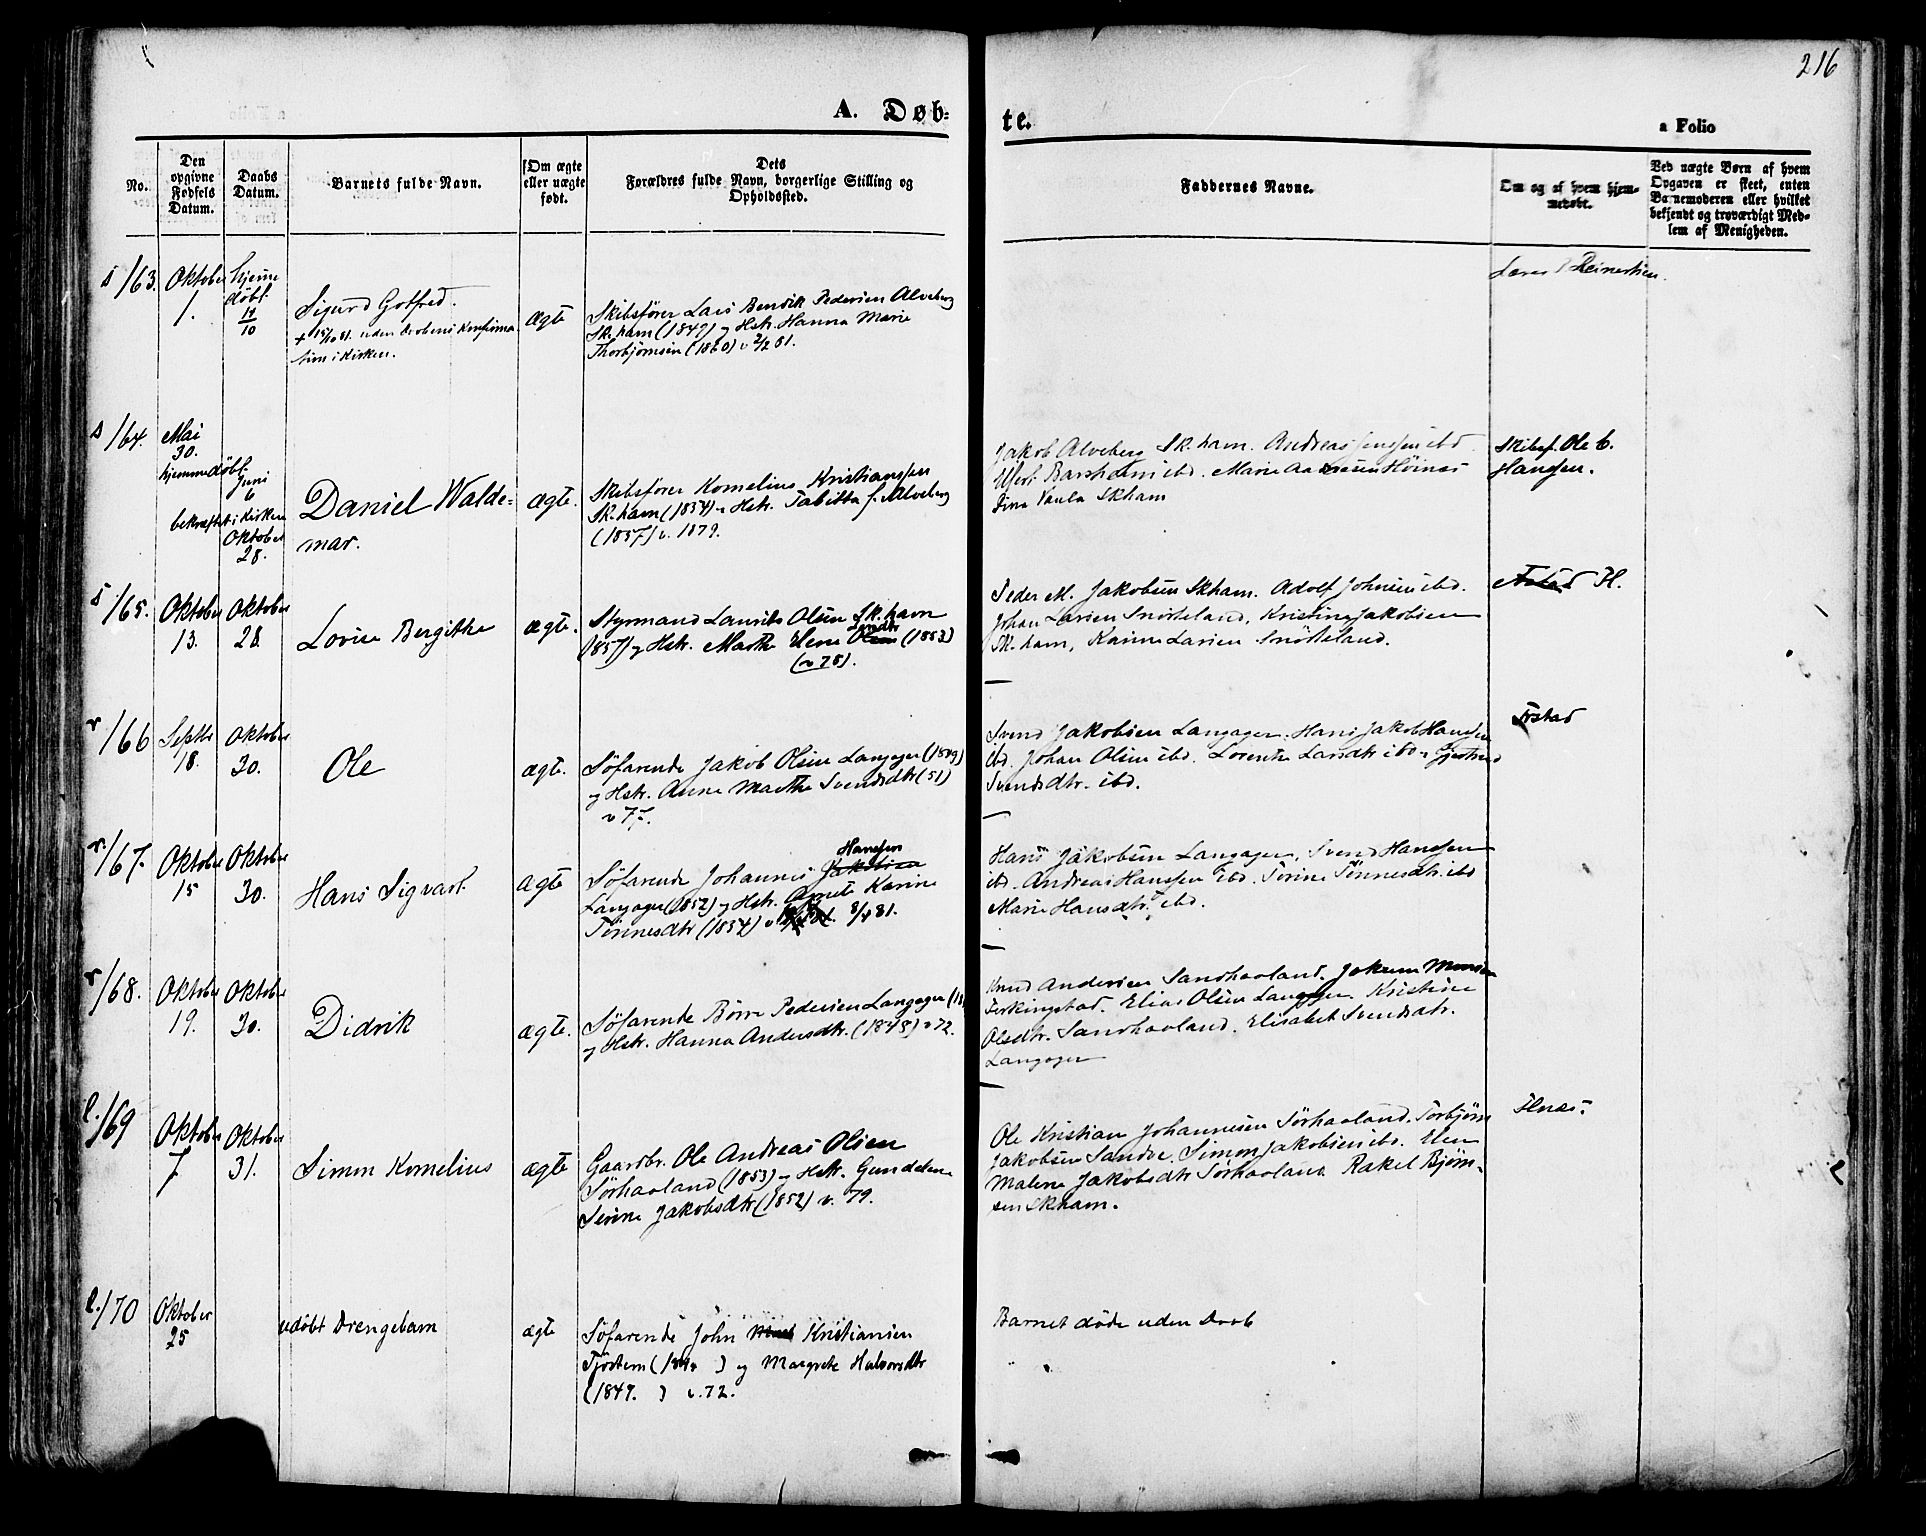 216
A. Døb-
te.
a Folio
No.
Den
opgivne
Fødsels
Datum.
Daabs
Datum.
Barnets fulde Navn.
Om ægte
eller uægte
født.
Dets
Forældres fulde Navn, borgerlige Stilling og
Opholdssted.
Faddernes Navne.
Om og af hvem hjem-
medøbt.
Ved uægte Børn af hvem
Opgaven er skeet, enten
Barnemoderen eller hvilket
bekjendt og troværdigt Med-
lem af Menigheden.
s/63.
Oktober
1.
hjemme
døbt
11/10
Sigurd Gotfred.
+ 15/10 81. uden Daabens Konfirma
tion i Kirken.
ægte
Skibsfører Lars Bendik Pedersen Alveberg
Sk.ham (1849) og Hstr. Hanna Marie
Thorbjørnsen (1860) v 2/2 81.
Lærer Reinertsen
s/64.
Mai
30.
hjemmedøbt
Juni
6
bekræftet i Kirken
Oktober
28.
Daniel Walde-
mar.
ægte.
Skibsfører Kornelius Kristianssen
Sk.ham (1854) og Hstr. Tabitta f. Alveberg
(1857) v. 1879.
Jakob Alveberg Sk.ham. Andreas Jensen ibd
Marie Høines
Paula Skham
Skibsf. Ole C.
Hansen.
s/65.
Oktober
13.
Oktober
28.
Lovise Bergithe
ægte.
Styrmand Laurits Olsen Sk.ham
(1857) og Hstr. Marthe Elene Olsen (1853)
(v 78).
Peder M. Jakobsen Skham. Adolf Johnsen ibd.
Johan Larsen Snørteland, Kristine Jakobsen
Sk.ham, Karine Larsen Snørteland.
H.
r/66
Septbr
18.
Oktober
30.
Ole
ægte.
Søfarende Jakob Olsen Langager (1849)
og Hstr. Anne Marthe Svendsdtr (51)
v 77.
Svend Jakobsen Langager. Hans Jakob Hansen
ibd. Johan Olsen ibd. Lorentse Larsdtr ibd. Gjertrud
Svendsdtr. ibd.
r/67.
Oktober
15
Oktober
30.
Hans Sigvart
ægte
Hansen
Søfarende Johannes Jakobsen
Langager (1852) og Hstr. Karine
Tønnesdtr (1854) v 8/4 81.
Hans Jakobsen Langager, Svend Hansen
ibd. Andreas Hanssen ibd. Serine Tønnesdtr. ibd
Marie Hansdtr. ibd.
r/68.
Oktober
19.
Oktober
30.
Didrik
ægte.
Søfarende Børre Pedersen Langager (18
og Hstr. Hanna Andersdtr. (1848) v 72.
Knud Andersen Sandhaaland. Jokum Monsen
Ferkingstad. Elias Olsen Langager. Kristine
Olsdtr. Sandhaaland. Elisabet Svendsdtr.
Langager
l./69
Oktober
7
Oktober
31.
Simon Kornelius
ægte
Gaardbr. Ole Andreas Olsen
Sørhaaland (1853) og Hstr. Gundelene
Serine Jakobsdtr (1852) v. 79.
Ole Kristian Johannesen Sørhaaland. Torbjørn
Jakobsen Sandve. Simon Jakobsen ibd. Elen
Malene Jakobsdtr Sørhaaland Rakel Bjørn-
sen Skham.
l./70
Oktober
25
udøbt Drengebarn
ægte
Søfarende John Kristiansen
Tjøstem (184 ) og Margrete Halvorsdtr
(1849. ) v. 72.
Barnet døde uden Daab